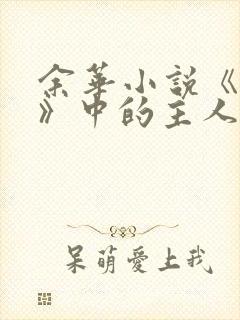 余華小説《
》中的主人
呆萌愛上我